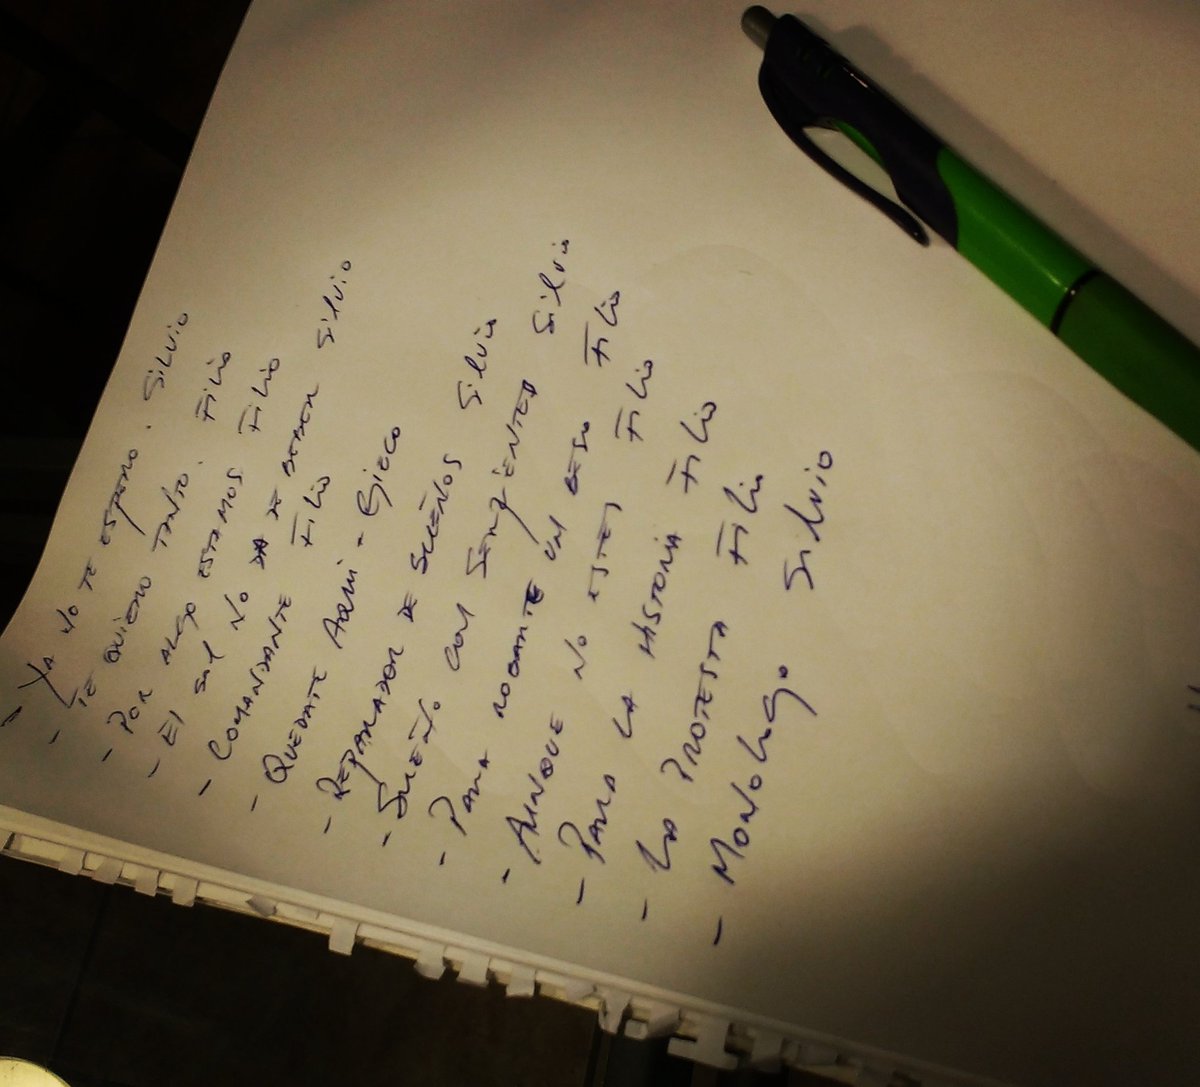 - Ya no te espero. Silvio
- Te quiero tanto. Filio
- Por algo estamos Filio
- El sol no da de beber Silvio
- Comandante Filio
- Quedate Aqui - Gieco
- Reparador de sueños Silvio
- Sueño con serpientes Silvio
- Para robarte un beso Filio
- Aunque no estes Filio
- Para la historia Filio
- La protesta Filio
- Monologo Silvio